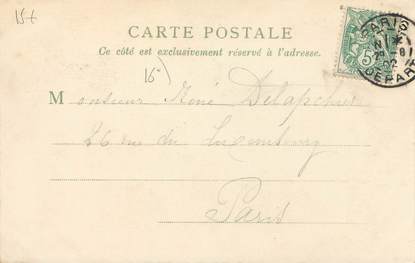 15€
CARTE POSTALE
Ce côté est exclusivement réservé à l'adresse.
16
Monsieur René Delapchier
26 rue du Luxembourg
Paris
PARIS
DÉPART
5